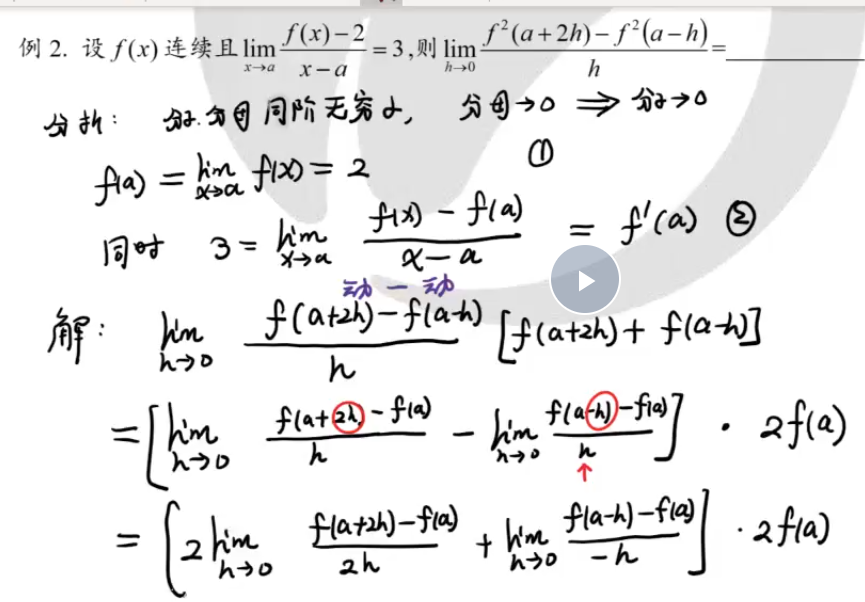 例 2. 设 f(x) 连续且 lim_{x→a} \frac{f(x)-2}{x-a} = 3 ,则 lim_{h→0} \frac{f²(a+2h)-f²(a-h)}{h} = ______
分析: 分子.分母 同阶无穷小, 分母→0 ⟹ 分子→0
①
f(a) = lim_{x→a} f(x) = 2
同时 3 = lim_{x→a} \frac{f(x)-f(a)}{x-a} = f'(a) ②
动 — 动
解: lim_{h→0} \frac{f(a+2h)-f(a-h)}{h} [f(a+2h)+f(a-h)]
= [lim_{h→0} \frac{f(a+2h)-f(a)}{h} - lim_{h→0} \frac{f(a-h)-f(a)}{h}] · 2f(a)
↑
= [2 lim_{h→0} \frac{f(a+2h)-f(a)}{2h} + lim_{h→0} \frac{f(a-h)-f(a)}{-h}] · 2f(a)